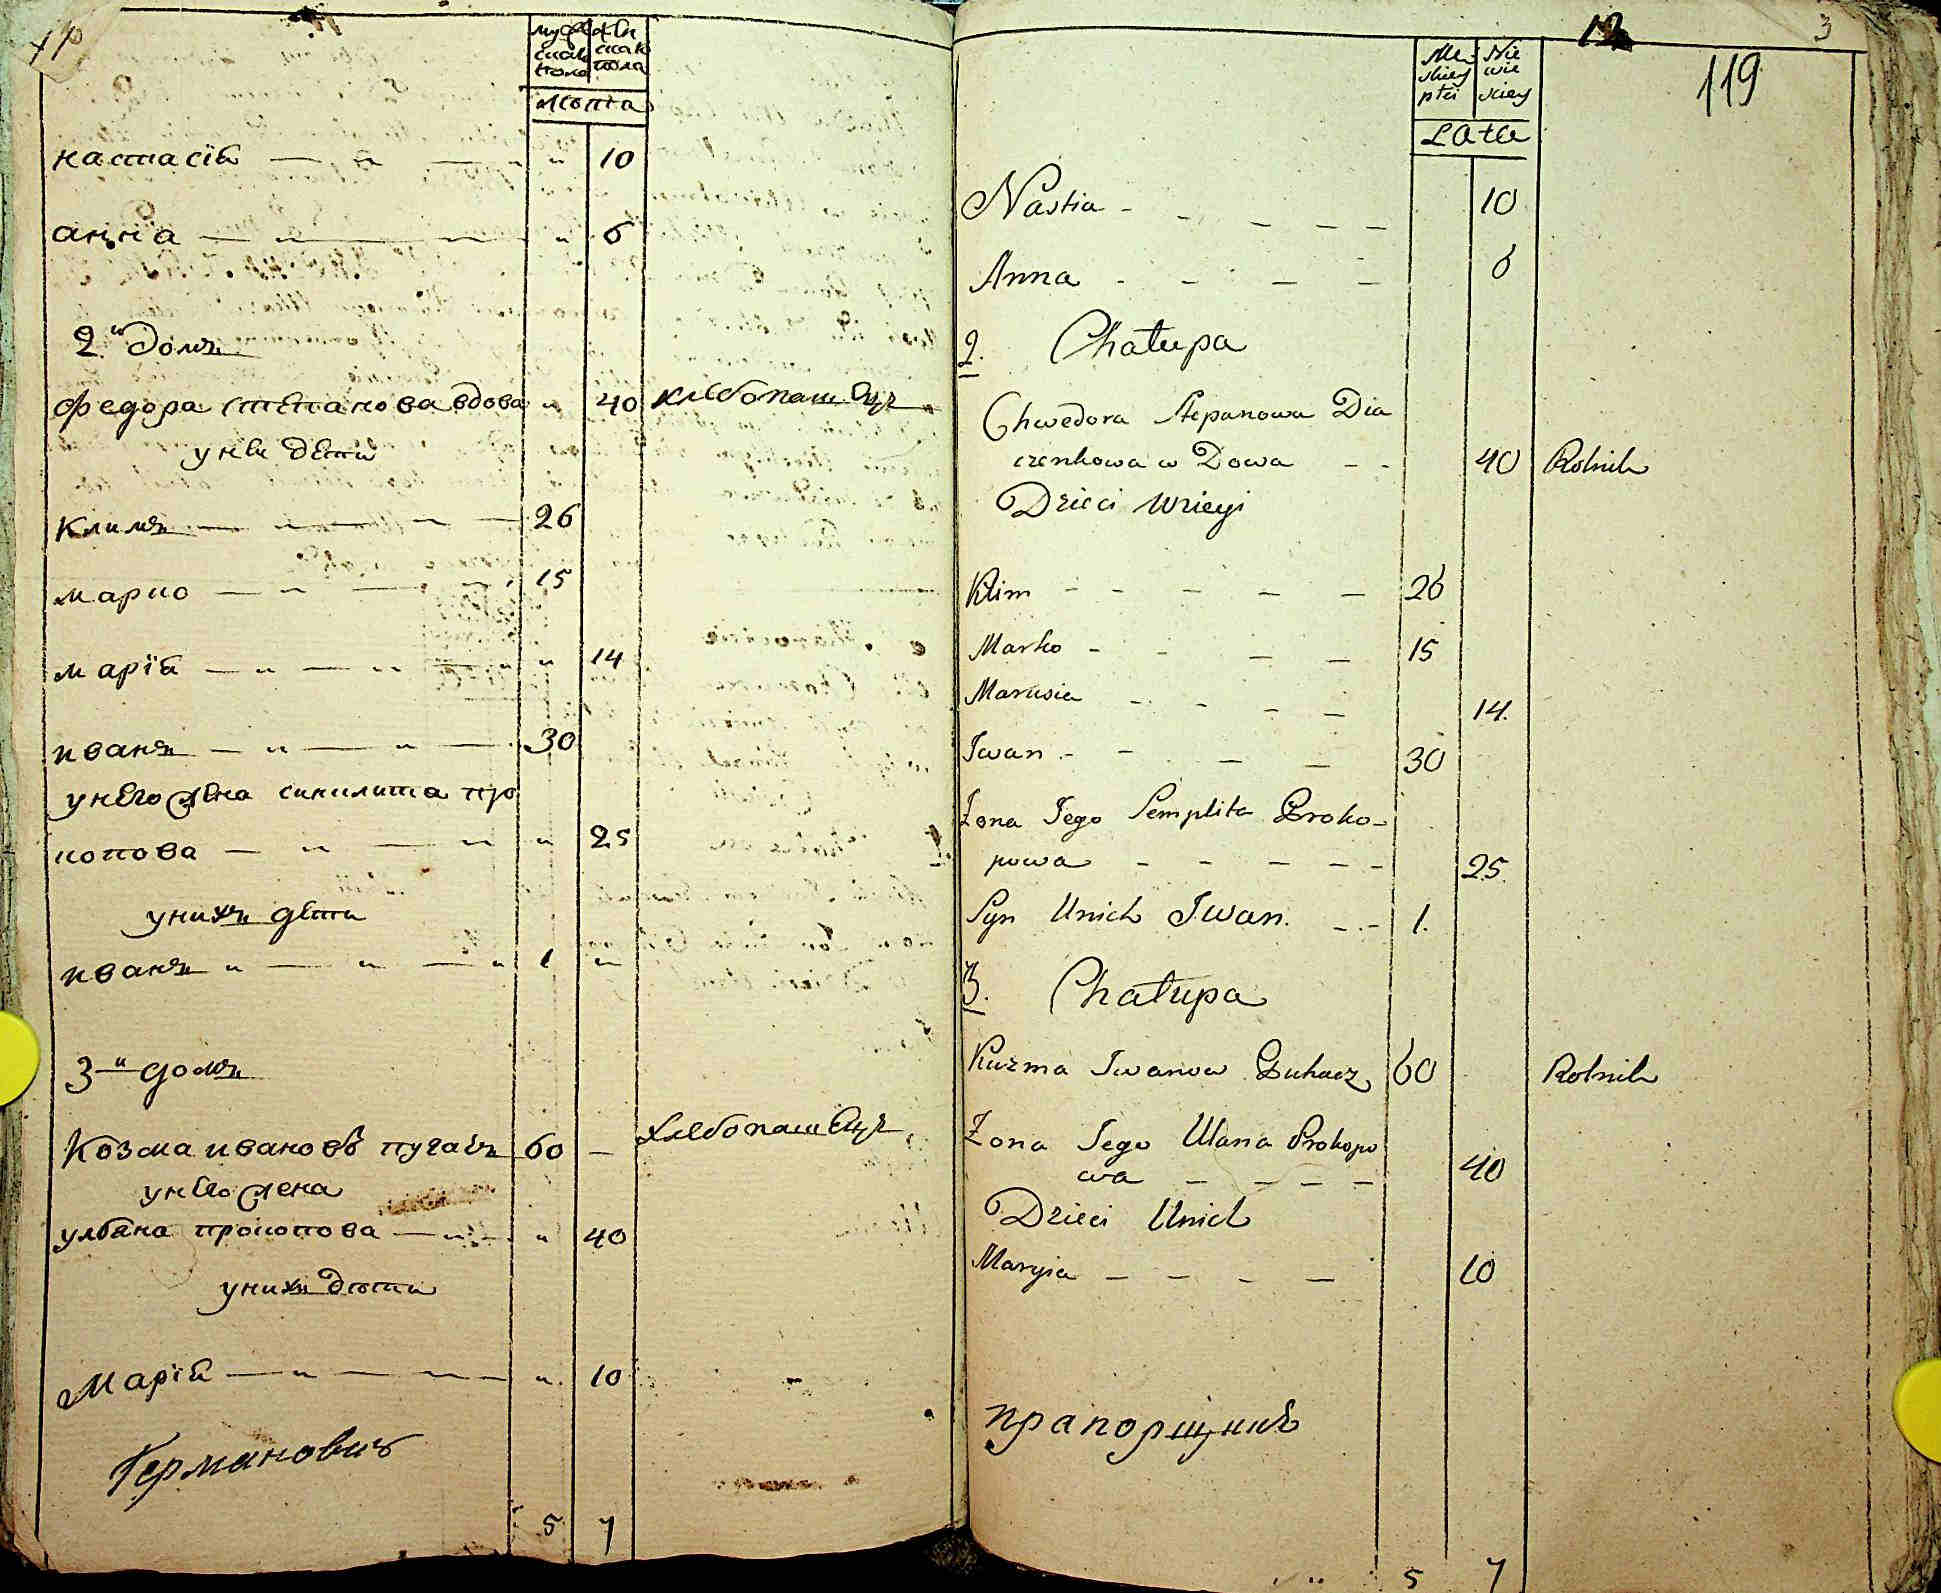 мужска пола
женска пола
лѣта
настасія — „ — „ 10
анна — „ — „ 6
2й домъ
федора степанова вдова „ 40 хлебопашецъ
у нея дети
климъ — „ — „ — 26
марко — „ — 15
марія — „ — „ — „ 14
иванъ — „ — „ — 30
у него жена
про
копова — „ — „ „ 25
у нихъ дети
иванъ „ — „ — „ 1 „
3й домъ
Козма ивановъ пугачъ 60 — хлебопашецъ
у него жена
улбяна прокопова — „ — „ 40
у нихъ дети
Марія — „ — „ — „ 10
Германовичъ
5 7
12 3
119
Męskiey płci
Niewieskiey
Lata
Nastia - - - - - 10
Anna - - - - 6
2. Chałupa
Chwedora Stepanowa Dia
czenkowa w Dowa - - 40 Rolnik
Dzieci Wzieyi
Klim - - - - - 26
Marko - - - - 15
Marusia - - - - 14.
Iwan - - - - 30
Żona Jego Semplita Proko-
powa - - - - - 25.
Syn Unich Iwan. - - - 1.
3. Chałupa
Kuzma Iwanow Puhacz 60 Rolnik
Żona Jego Ulana Prokopo
wa - - - - 40
Dzieci Unich
Maryia - - - - 10
прапорщикъ
5 7